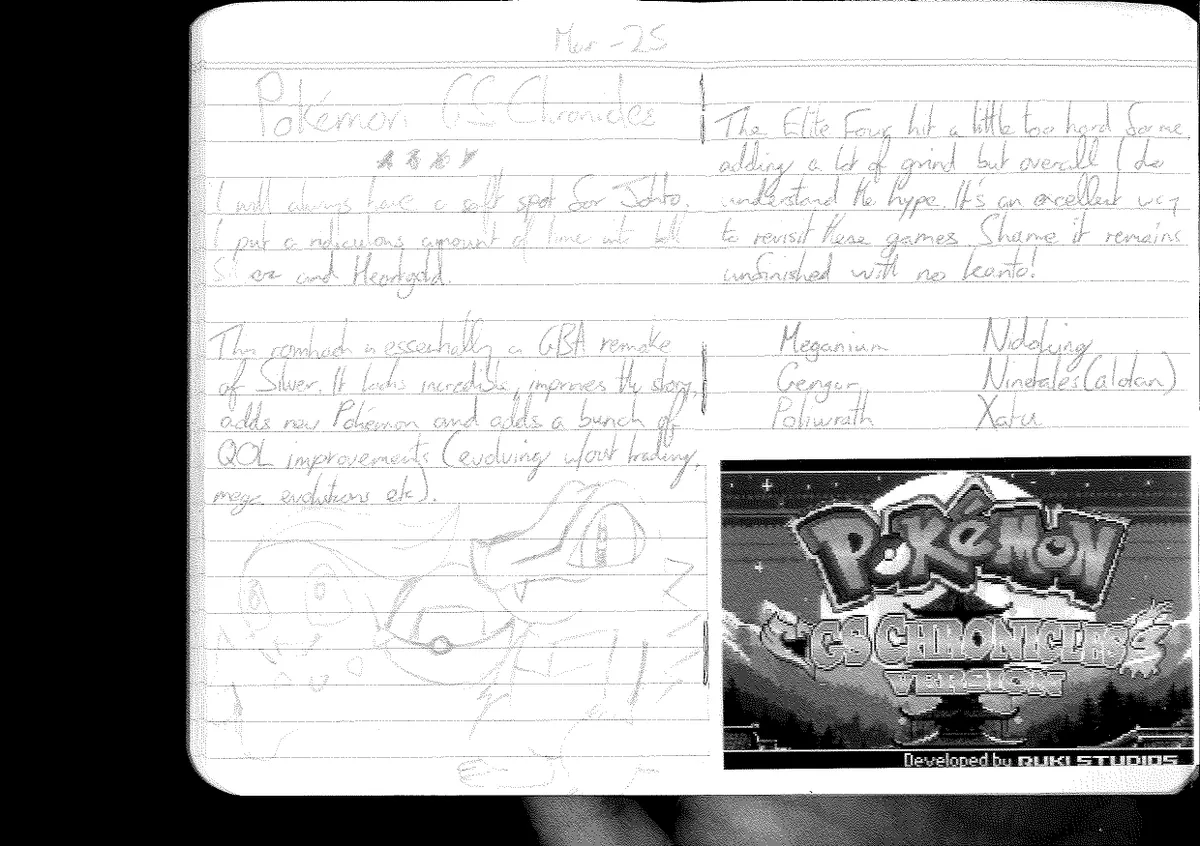 Mar - 25
Pokémon GS Chronicles
I will always have a soft spot for Johto.
I put a ridiculous amount of time into both
Silver and Heartgold.
This romhack is essentially a GBA remake
of Silver. It looks incredible, improves the story,
adds new Pokémon and adds a bunch of
QOL improvements (evolving w/out trading,
mega evolutions etc).
The Elite Four hit a little too hard for me,
adding a lot of grind but overall I do
understand the hype. It's an excellent way
to revisit these games. Shame it remains
unfinished with no Kanto!
Meganium
Gengar
Poliwrath
Nidoking
Ninetales (alolan)
Xatu
POKéMON
GS CHRONICLES
VERSION
Developed by RUKI STUDIOS